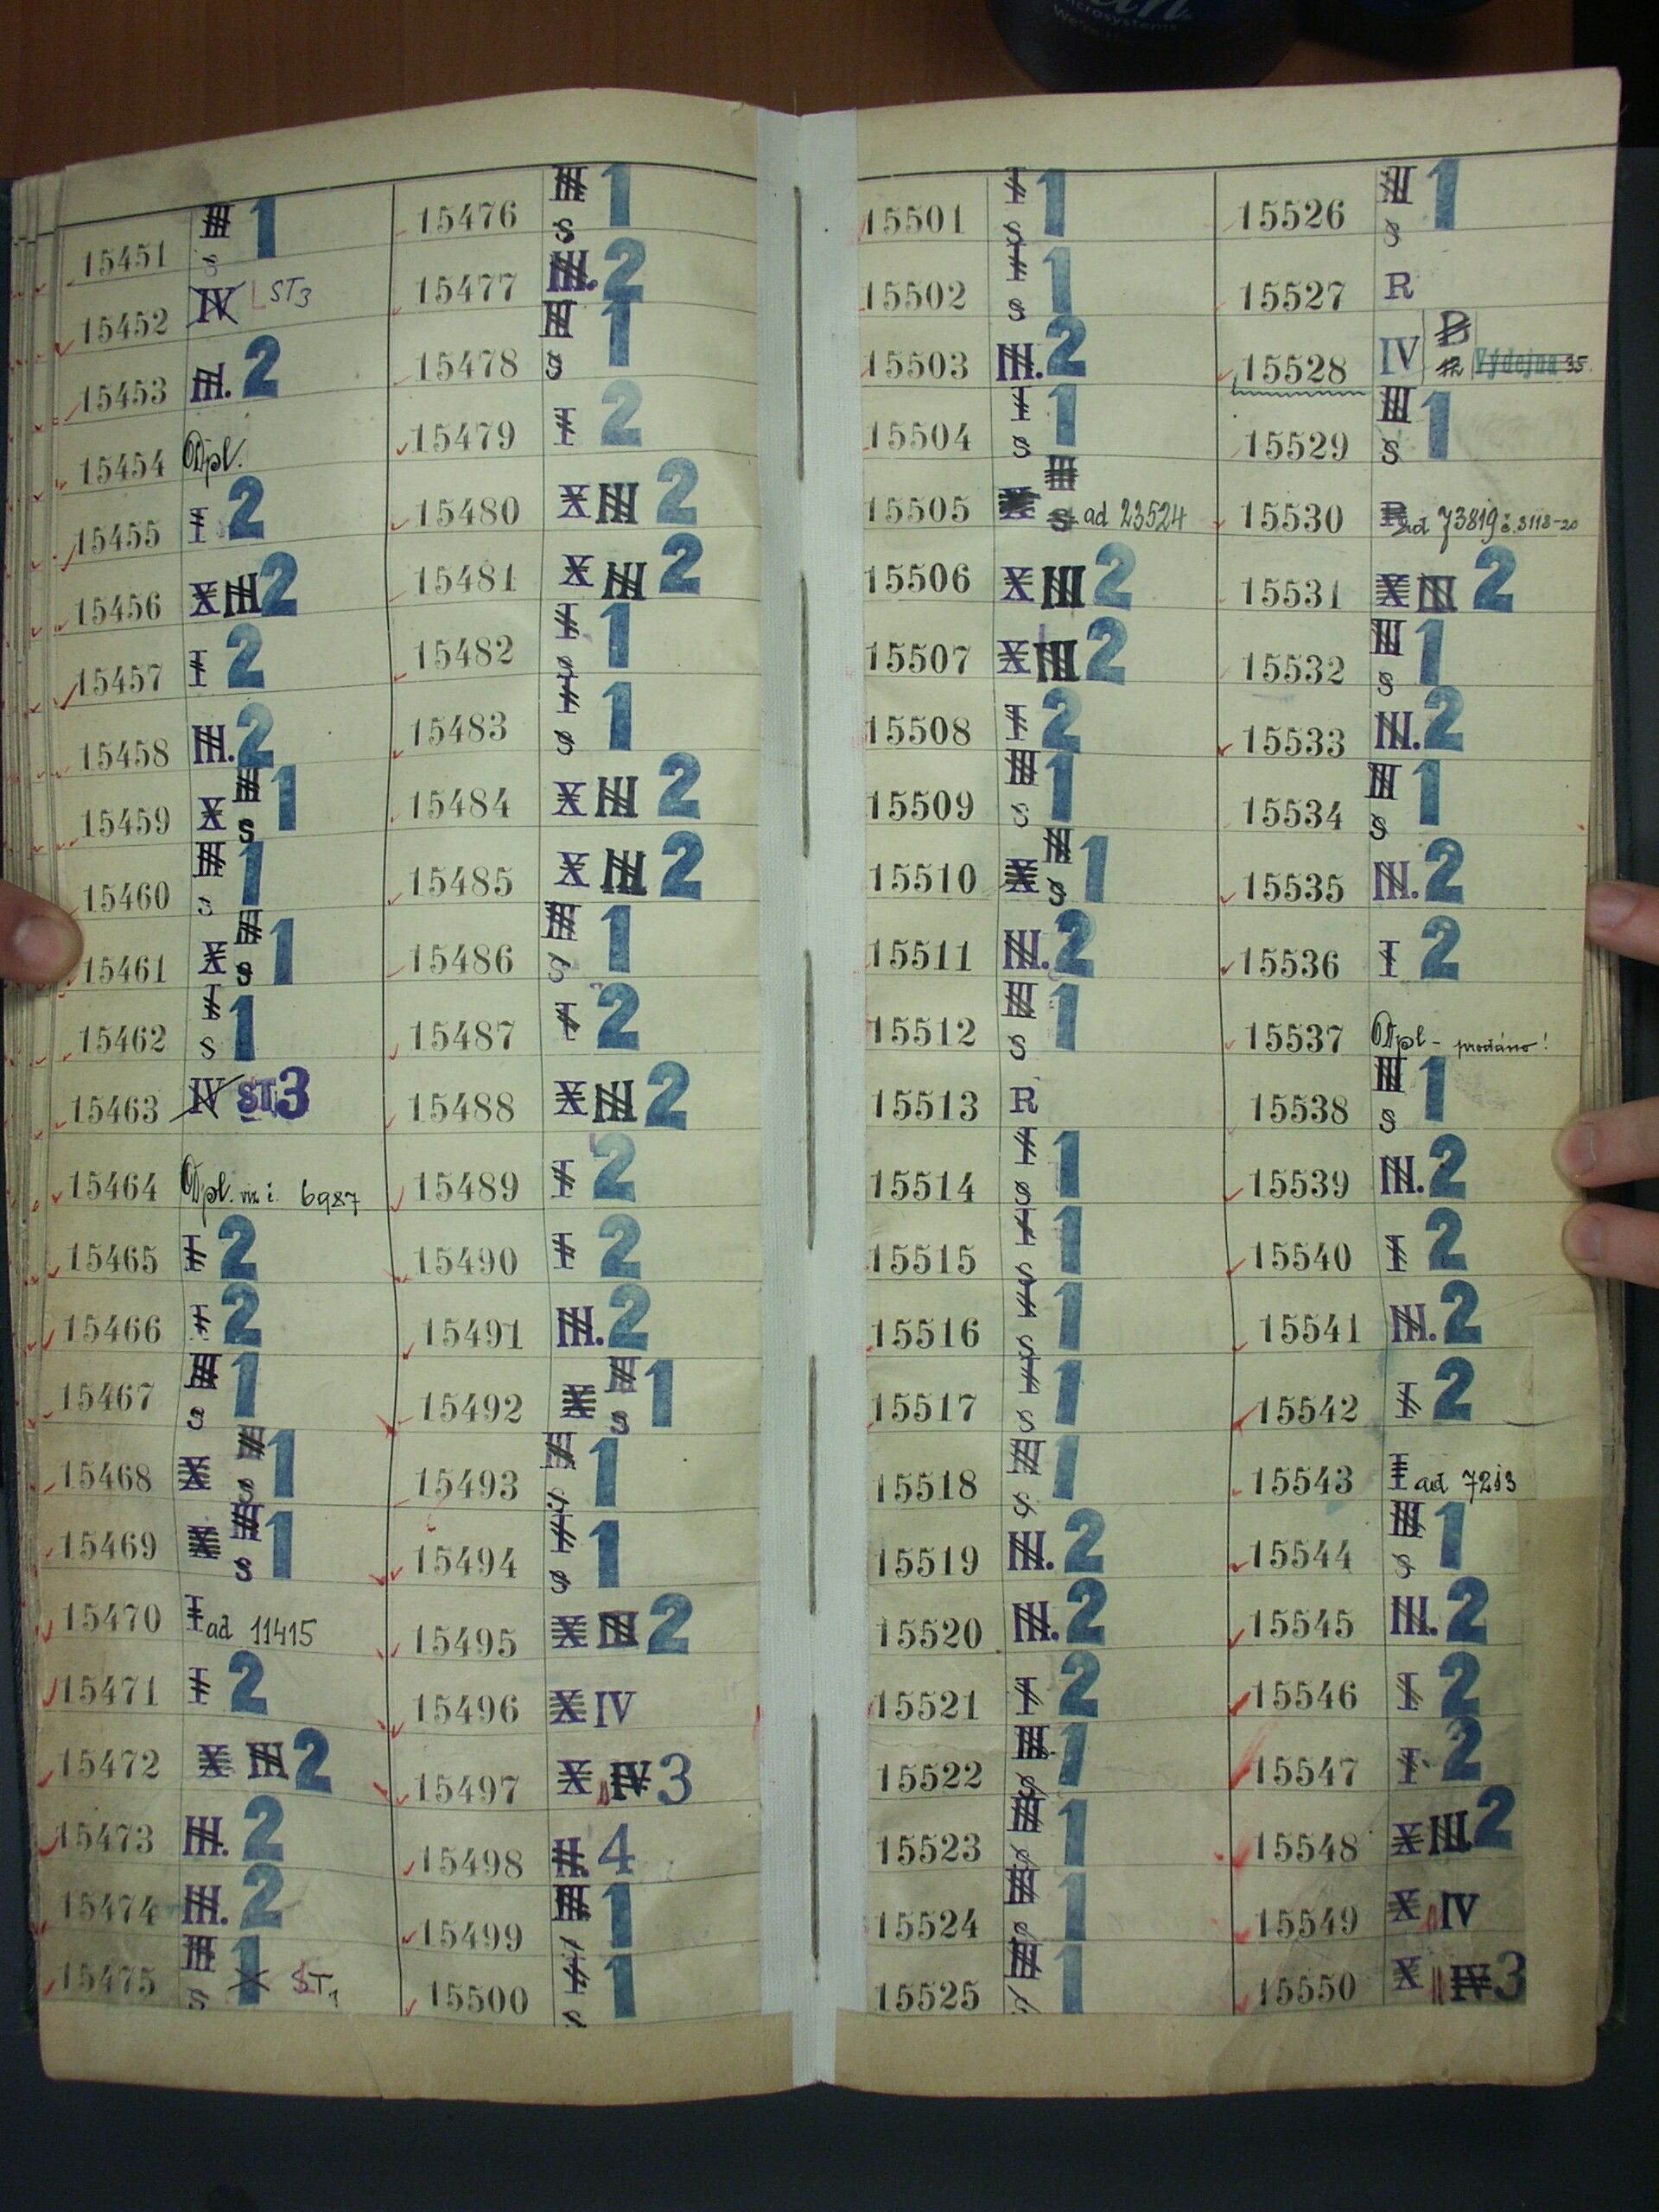 microsystems
15451 III s 1
15452 IV ST3
15453 III. 2
15454 Odpl.
15455 I 2
15456 X III 2
15457 I 2
15458 III. 2
15459 X III s 1
15460 III s 1
15461 X III s 1
15462 I s 1
15463 IV ST3
15464 Odpl. viz i. 6987
15465 I 2
15466 I 2
15467 III s 1
15468 X III s 1
15469 X III s 1
15470 I ad 11415
15471 I 2
15472 X III 2
15473 III. 2
15474 III. 2
15475 III s 1 ST1
15476 III s 1
15477 III. 2
15478 III s 1
15479 I 2
15480 X III 2
15481 X III 2
15482 I s 1
15483 I s 1
15484 X III 2
15485 X III 2
15486 III s 1
15487 I 2
15488 X III 2
15489 I 2
15490 I 2
15491 III. 2
15492 X III s 1
15493 III s 1
15494 I s 1
15495 X III 2
15496 X IV
15497 X IV 3
15498 II. 4
15499 III s 1
15500 I s 1
15501 I s 1
15502 I s 1
15503 III. 2
15504 I s 1
15505 X III s ad 23524
15506 X III 2
15507 X III 2
15508 I 2
15509 III s 1
15510 X III s 1
15511 III. 2
15512 III s 1
15513 R
15514 I s 1
15515 I s 1
15516 I s 1
15517 I s 1
15518 III s 1
15519 III. 2
15520 III. 2
15521 I 2
15522 III s 1
15523 III s 1
15524 III s 1
15525 III s 1
15526 III s 1
15527 R
15528 IV B Výdejna 35
15529 III s 1
15530 R ad 73819 č. 3118-20
15531 X III 2
15532 III s 1
15533 III. 2
15534 III s 1
15535 III. 2
15536 I 2
15537 Odpl - prodáno!
15538 III s 1
15539 III. 2
15540 I 2
15541 III. 2
15542 I 2
15543 I ad 7213
15544 III s 1
15545 III. 2
15546 I 2
15547 I 2
15548 X III 2
15549 X IV
15550 X IV 3